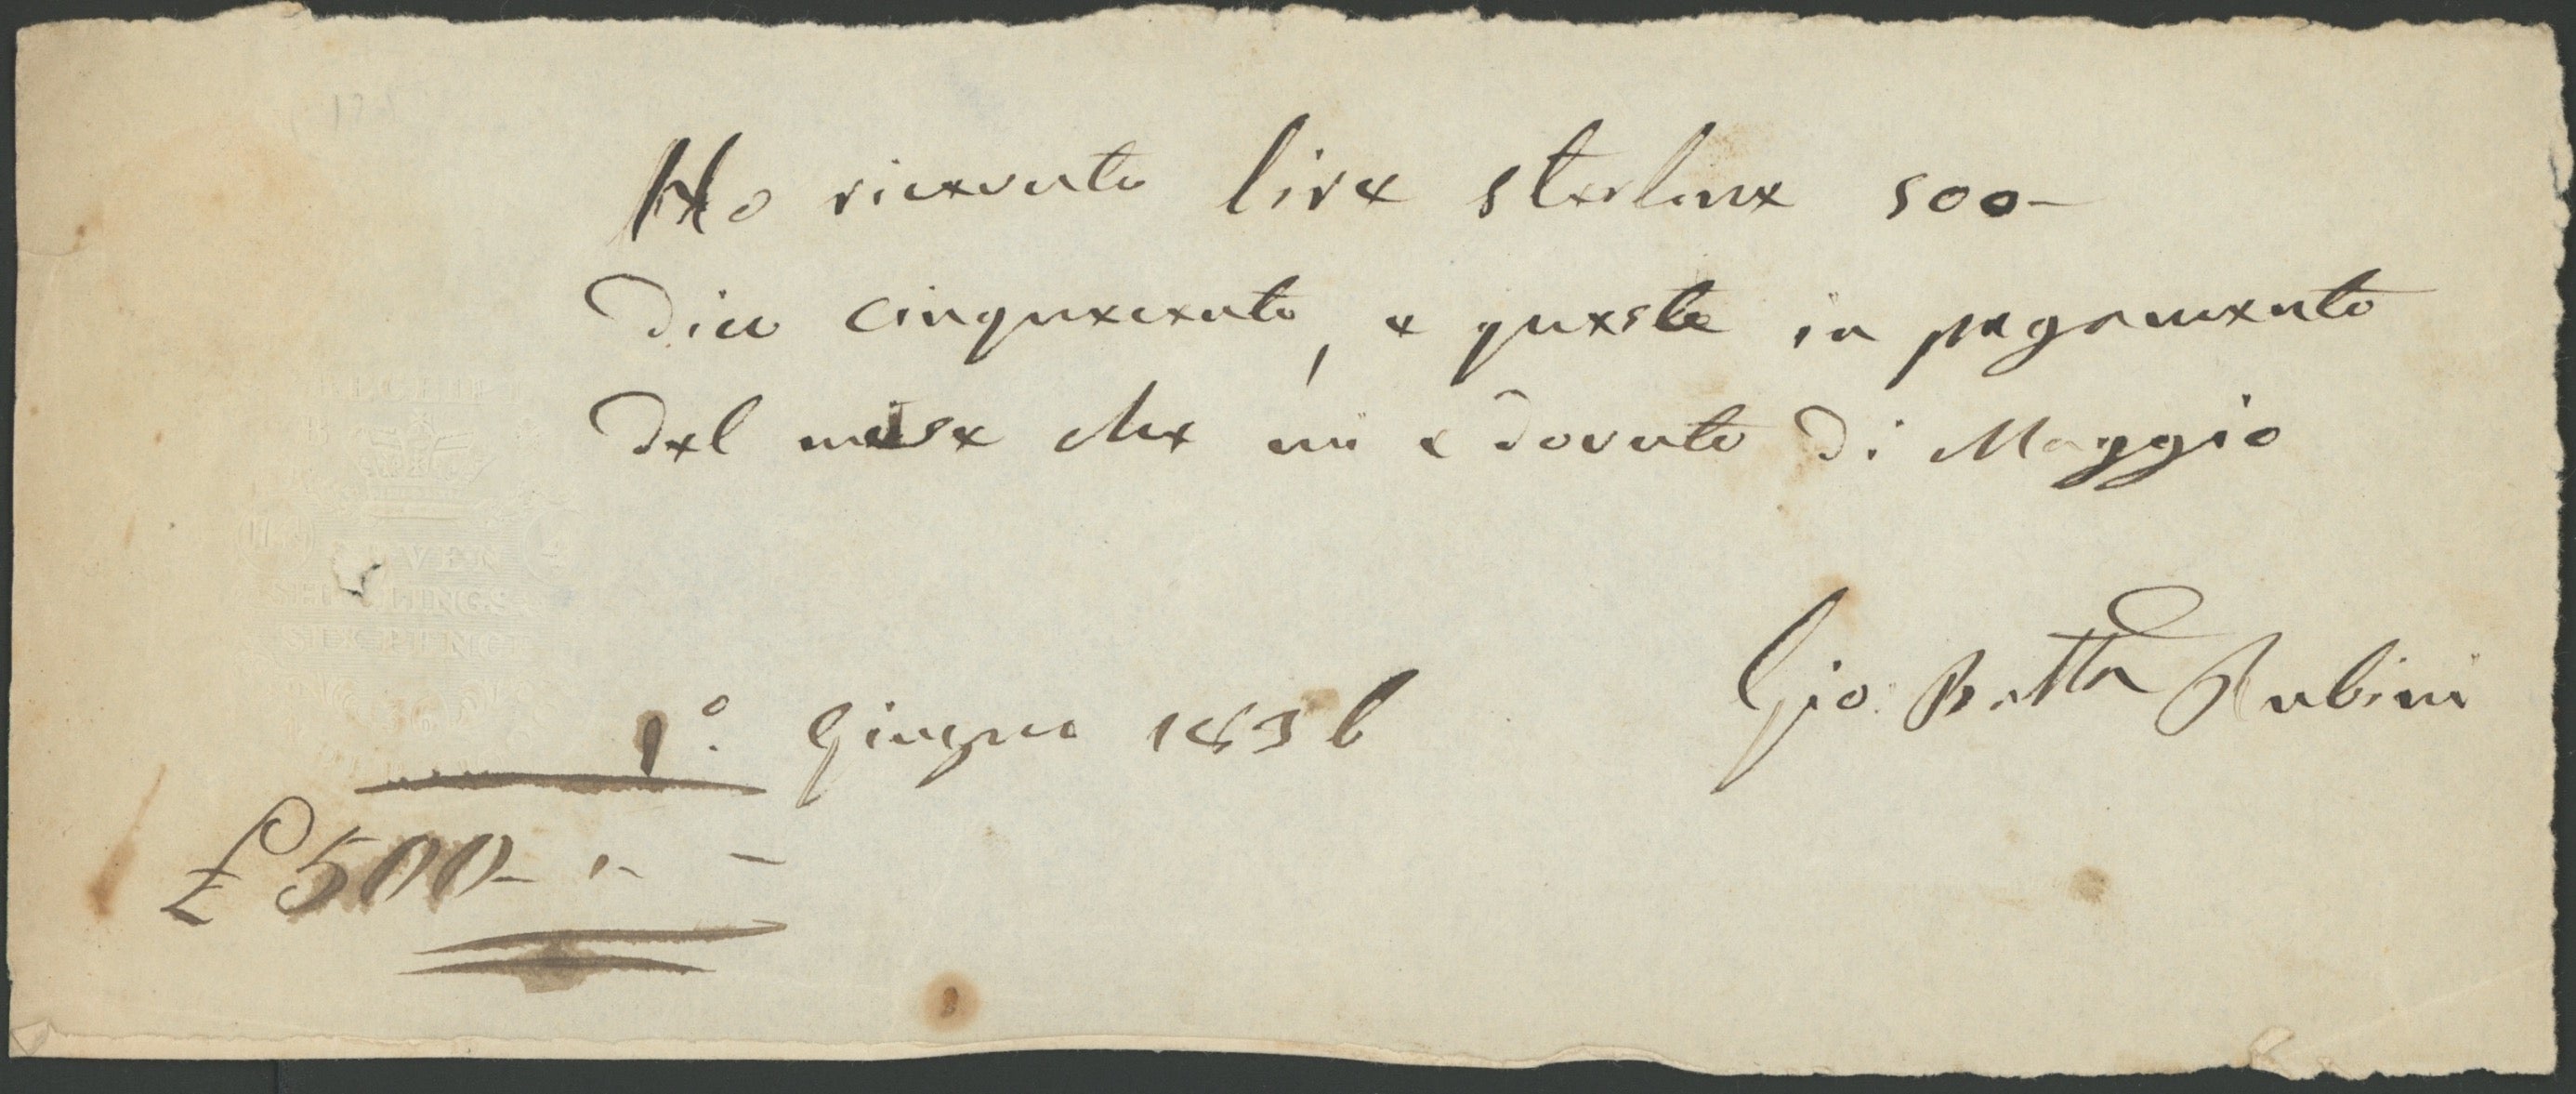 Ho ricevuto lire sterline 500-
dico cinquecento, e queste in pagamento
del mese che mi è dovuto di Maggio
Gio. Batta Rubini
1º. Giugno 1836
£500-
RECEIPT
SEVEN
SHILLINGS
SIX PENCE